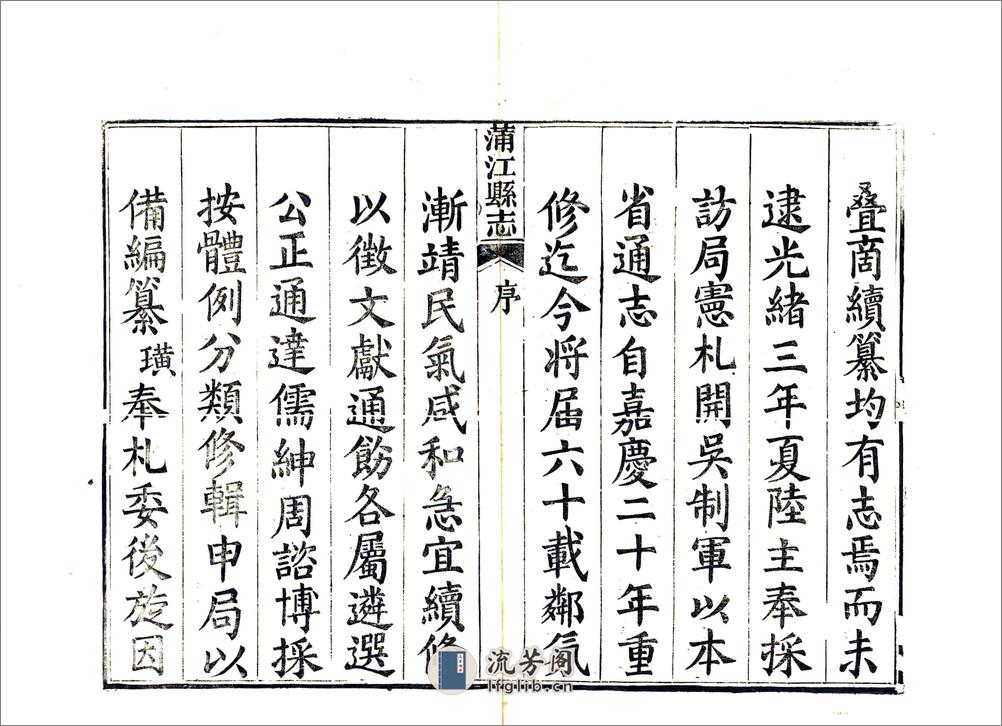 疊啇續纂均有志焉而未
逮光緒三年夏陸主奉採
訪局憲札開吳制軍以本
省通志自嘉慶二十年重
修迄今將届六十載鄰氣
蒲江縣志
序
漸靖民氣咸和急宜續修
以徵文獻通飭各屬遴選
公正通達儒紳周諮博採
按體例分類修輯申局以
備編纂璜奉札委後旋因
流芳阁
lfglib.cn